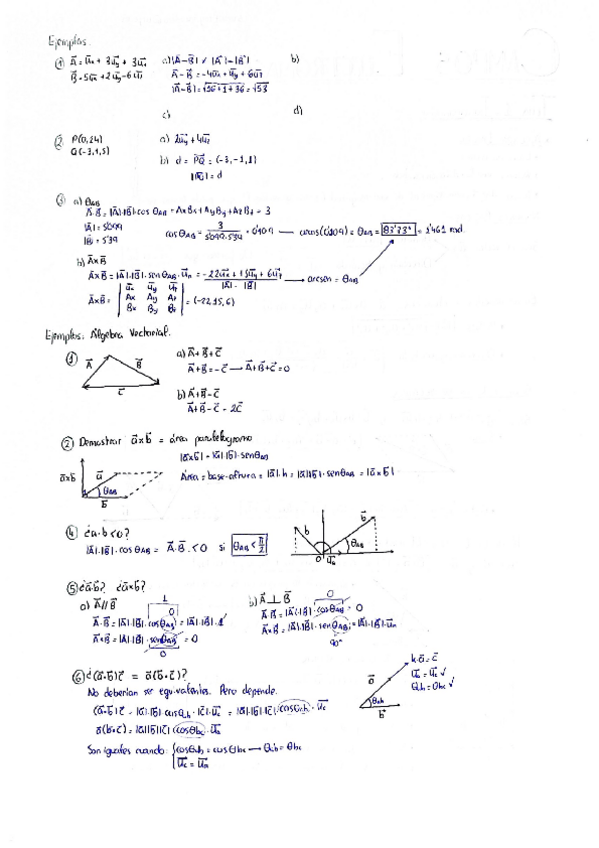 Ejemplos.
① A⃗ = u⃗x + 3u⃗y + 3u⃗z
B⃗ = 5u⃗x + 2u⃗y - 6u⃗z
a) |A⃗-B⃗| ✓ |A⃗|-|B⃗|
A⃗-B⃗ = -4u⃗x + u⃗y + 6u⃗z
|A⃗-B⃗| = √53
b)
c)
d)
② P(0,2,4)
Q(-3,1,5)
a) 2u⃗y + 4u⃗z
b) d = PQ⃗ = (-3,-1,1)
= d
③ a) θAB
A⃗·B⃗ = |A⃗|·|B⃗|·cos θAB = AxBx + AyBy + AzBz = 3
|A⃗| = 5'099
|B⃗| = 5'39
cosθAB = 3 / 5'099·5'39 = 0'109 → arcos(0'109) = θAB = = 1'461 rad
b) A⃗×B⃗
A⃗×B⃗ = |A⃗|·|B⃗|·senθAB·u⃗n = -22u⃗x + 15u⃗y + 6u⃗z / |A⃗|·|B⃗| → arcsen = θAB
A⃗×B⃗ = | u⃗x u⃗y u⃗z
Ax Ay Az
Bx By Bz | = (-22,15,6)
Ejemplos: Álgebra Vectorial.
① A⃗ B⃗ C⃗
a) A⃗+B⃗+C⃗
A⃗+B⃗ = -C⃗ → A⃗+B⃗+C⃗ = 0
b) A⃗+B⃗-C⃗
A⃗+B⃗-C⃗ = -2C⃗
② Demostrar a⃗×b⃗ = área paralelogramo
|a⃗×b⃗| = |a⃗|·|b⃗|·senθAB
Área = base·altura = |a⃗|·h = |a⃗|·|b⃗|·senθAB = |a⃗×b⃗|
a⃗×b⃗ a⃗ θAB b⃗
④ ¿a·b<0?
|A⃗|·|B⃗|·cosθAB = A⃗·B⃗ < 0 si θAB < π/2
b b⃗ θAB 0 u⃗a
⑤ ¿a⃗·b⃗? ¿a⃗×b⃗?
a) A⃗∥B⃗
1
A⃗·B⃗ = |A⃗|·|B⃗|·cosθAB = |A⃗|·|B⃗|·1
0
A⃗×B⃗ = |A⃗|·|B⃗|·senθAB = 0
0
b) A⃗⊥B⃗
0
A⃗·B⃗ = |A⃗|·|B⃗|·cosθAB = 0
A⃗×B⃗ = |A⃗|·|B⃗|·senθAB = |A⃗|·|B⃗|·u⃗n
90°
⑥ ¿(a⃗·b⃗)c⃗ = a⃗(b⃗·c⃗)?
No deberían ser equivalentes. Pero depende.
(a⃗·b⃗)c⃗ = |a⃗|·|b⃗|·cosθab·|c⃗|·u⃗c = |a⃗|·|b⃗|·|c⃗|·cosθab·u⃗c
a⃗(b⃗·c⃗) = |a⃗||b⃗||c⃗|·cosθbc·u⃗a
Son iguales cuando: { cosθab = cosθbc → θab = θbc
u⃗c = u⃗a
k·a⃗ = c⃗
u⃗c = u⃗a ✓
θab = θbc ✓
a⃗ θab b⃗